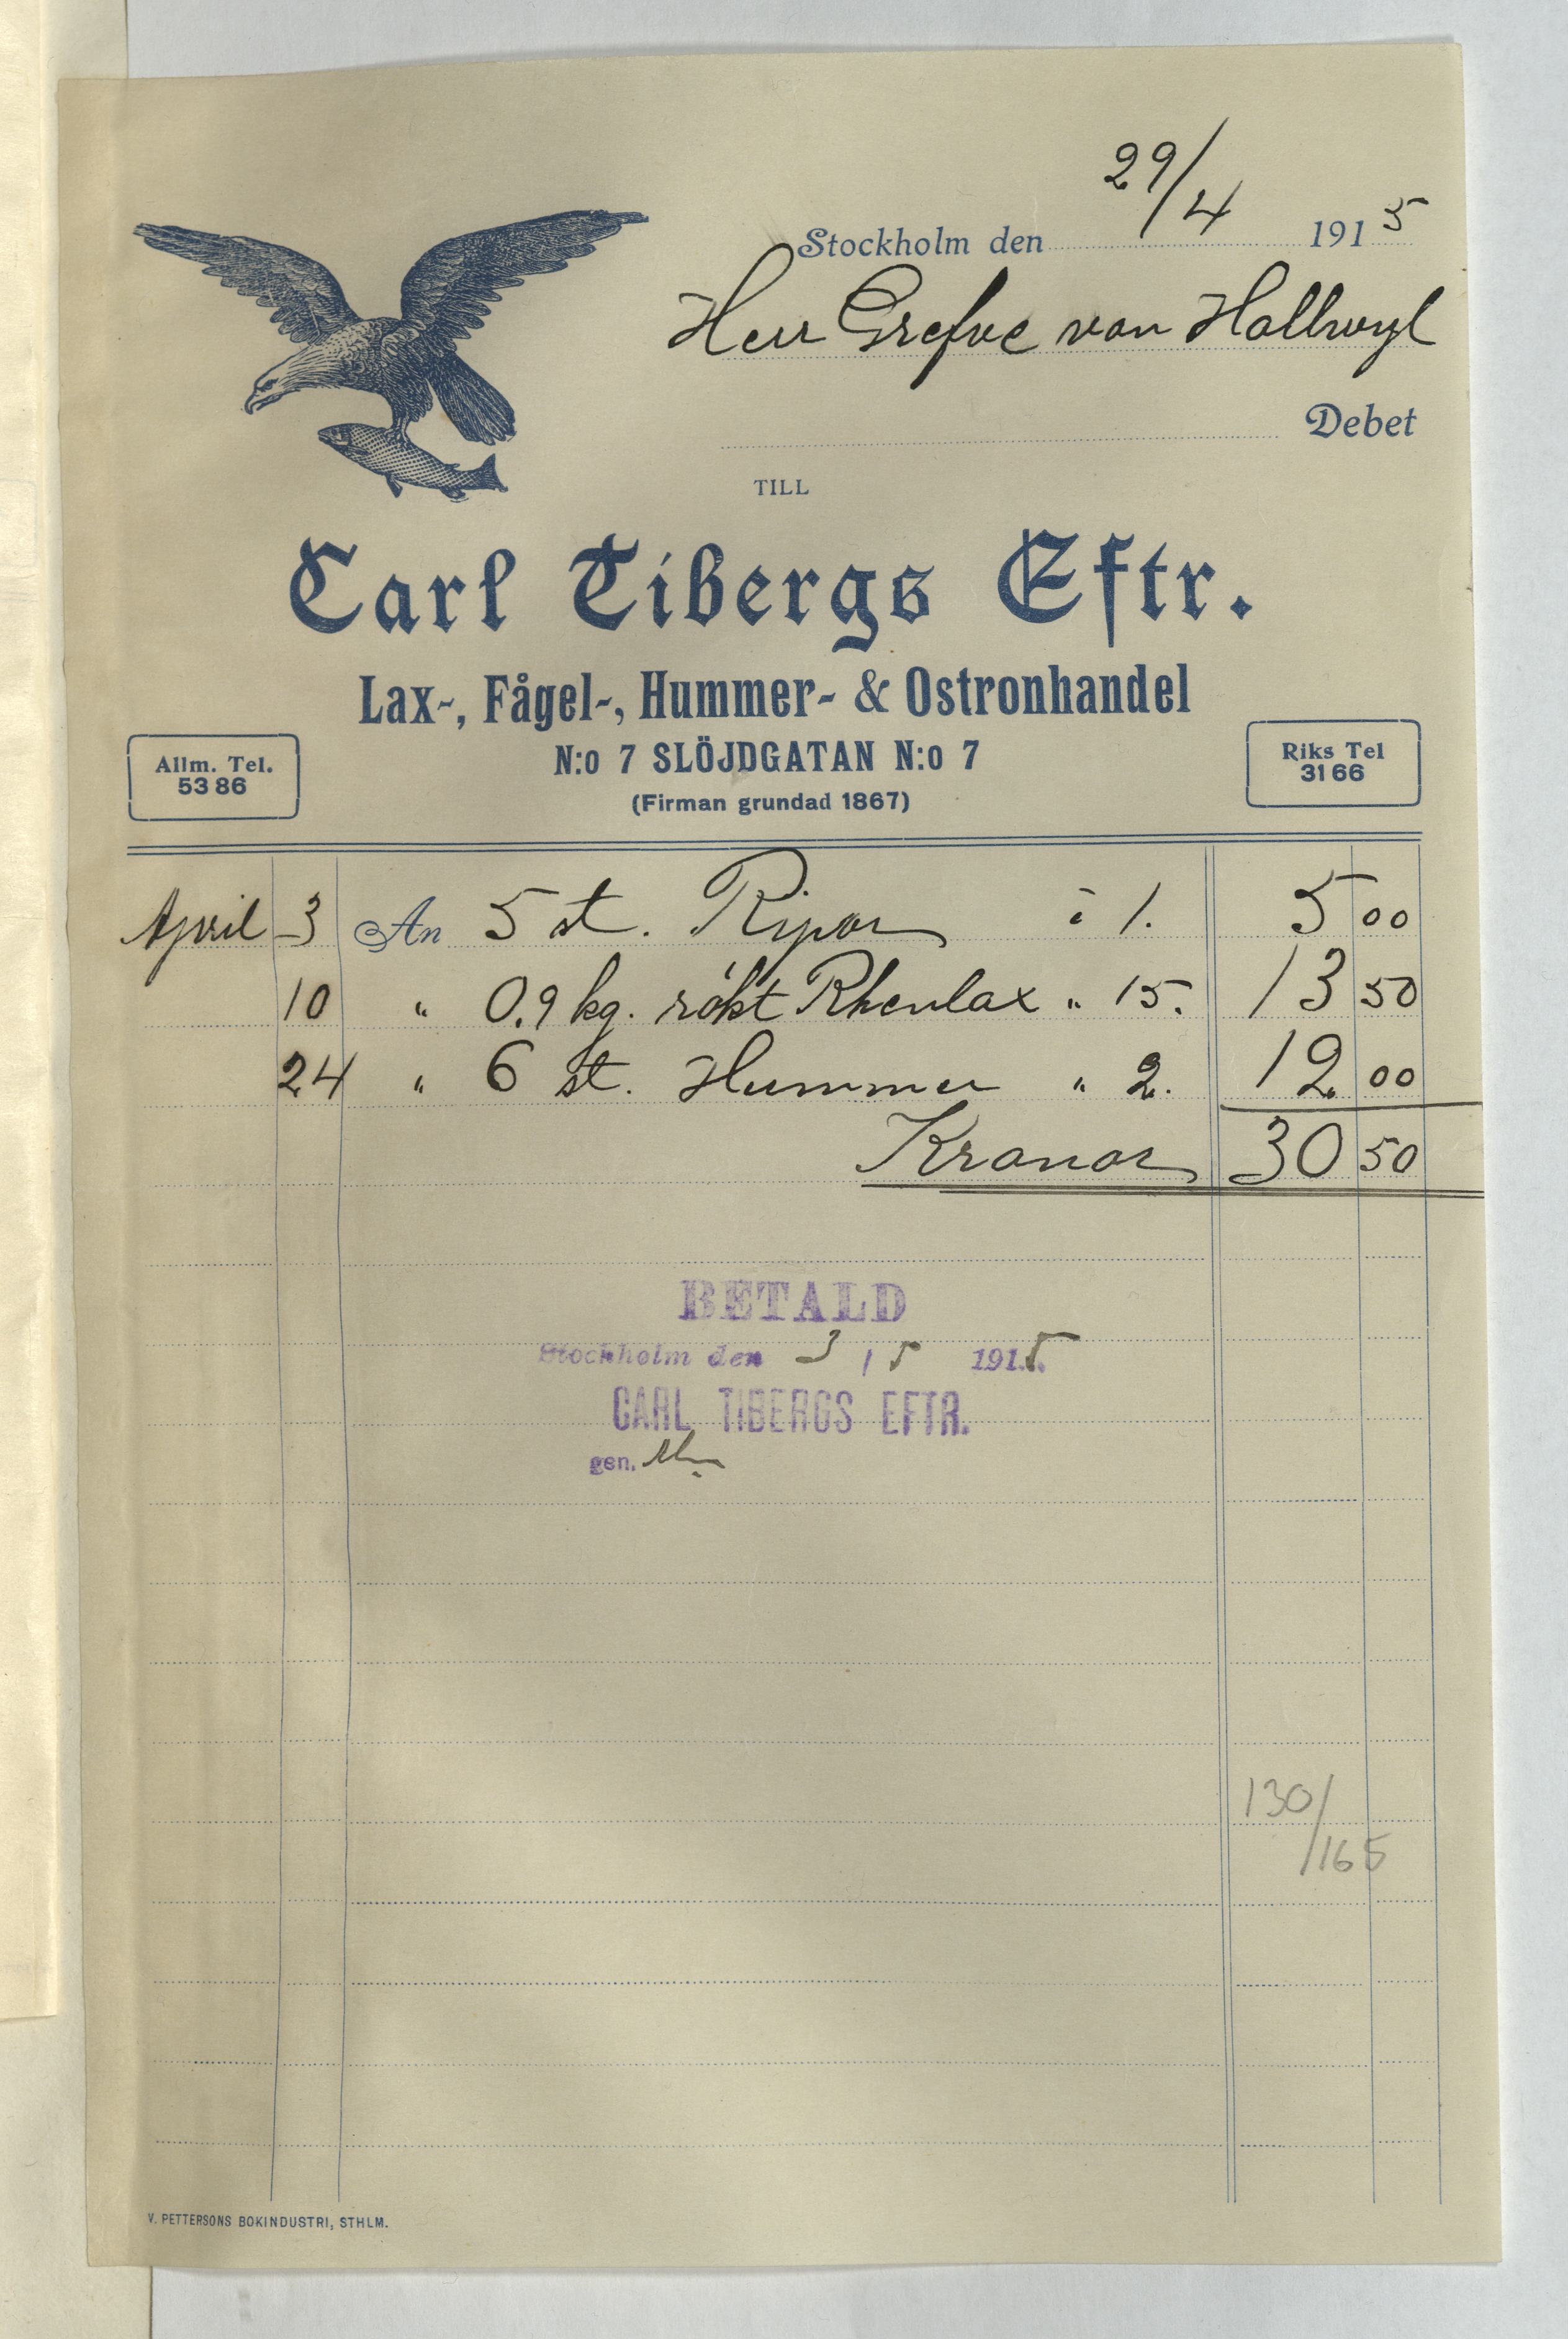 29/4
Stockholm den 1915
Herr Grefve von Hallwyl
Debet
TILL
Carl Tibergs Eftr.
Lax-, Fågel-, Hummer- & Ostronhandel
N:o 7 SLÖJDGATAN N:o 7
(Firman grundad 1867)
Allm. Tel.
53 86
Riks Tel
31 66
April 3 An 5 st. Ripor à 1. 5 00
10 " 0,9 kg. rökt Rhenlax " 15. 13 50
24 " 6 st. Hummer " 2. 12 00
Kronor 30 50
BETALD
Stockholm den 3 / 5 1915
CARL TIBERGS EFTR.
gen.
130/165
V. PETTERSONS BOKINDUSTRI, STHLM.